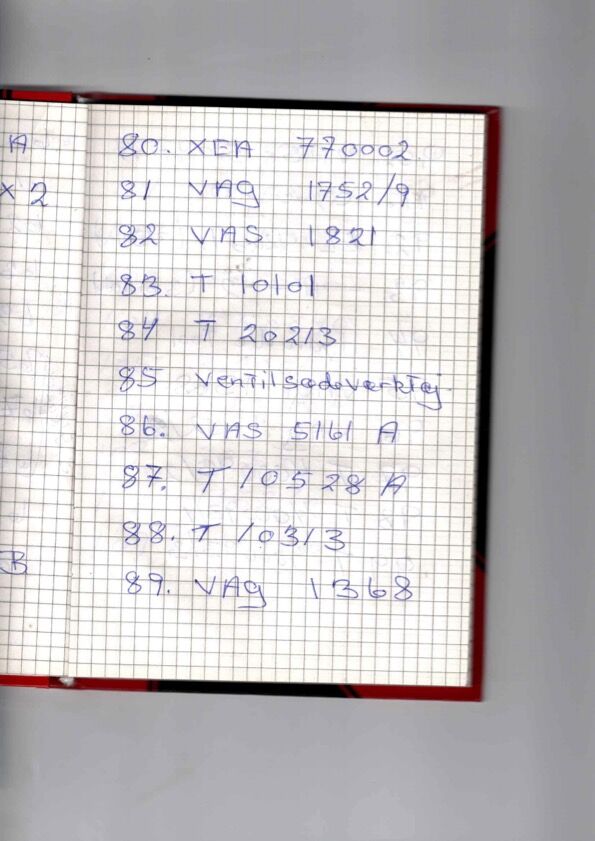 A
x 2
80. XEA 770002.
81 VAG 1752/9
82 VAS 1821
83. T 10101
84 T 20213
85 Ventilsædeværktøj
86. VAS 5161 A
87. T 10528 A
88. T 10313
B
89. VAG 1368